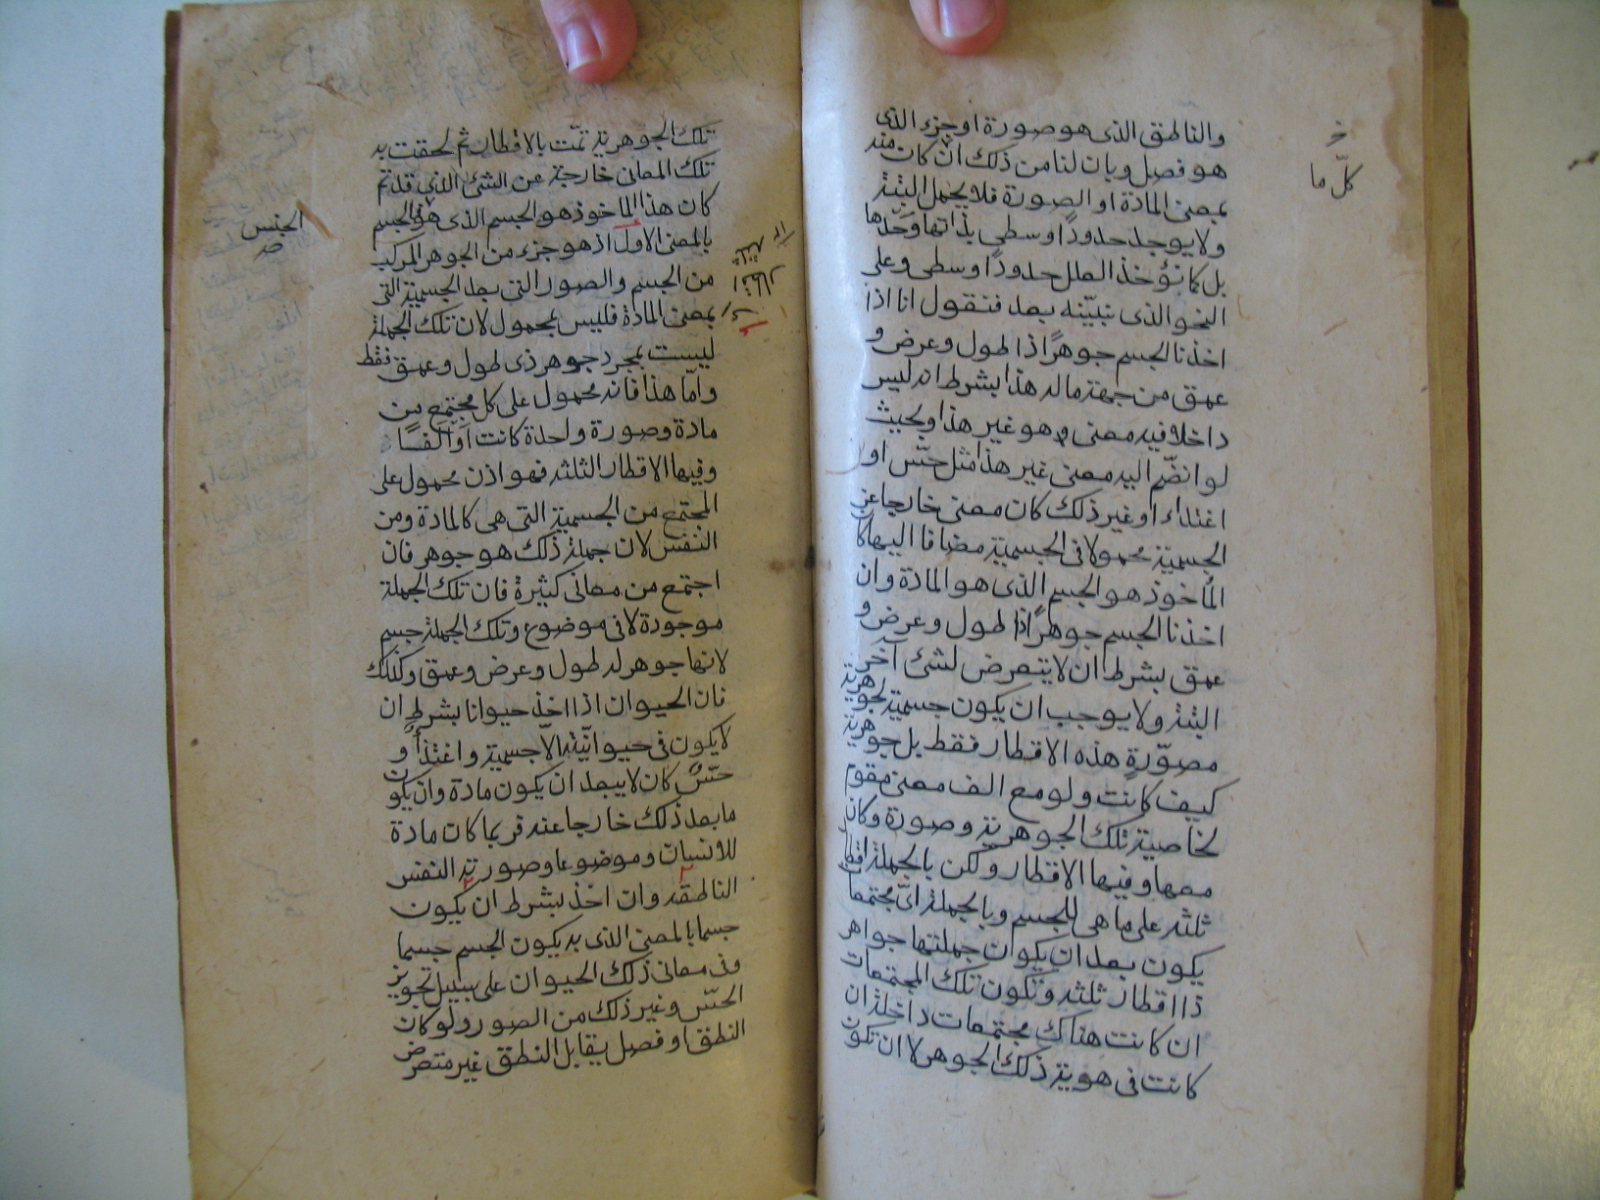 والناطق الذى هو صورة او جزء الذى
هو فصل وبان لنا من ذلك ان كان منه
بمعنى المادة او الصورة فلا يحمل البتة
ولا يوجد حدودًا وسطى بذاتها وحدها
بل كما تؤخذ العلل حدودًا وسطى وعلى
النحو الذى نبيّنه بعد فنقول انا اذا
اخذنا الجسم جوهرًا ذا طول وعرض و
عمق من جهة ماله هذا بشرط انه ليس
داخلا فيه معنى هو غير هذا وبحيث
لو انضّم اليه معنى غير هذا مثل حسّ او
اغتذاء او غير ذلك كان معنى خارجا عن
الجسمية محمولا فى الجسمية مضافا اليها كا
المأخوذ هو الجسم الذى هو المادة وان
اخذنا الجسم جوهرًا ذا طول وعرض و
عمق بشرط ان لا يتعرض لشئ آخر
البتة ولا يوجب ان يكون جسمية لجوهرية
مصوّرة هذه الاقطار فقط بل جوهرية
كيف كانت ولو مع الف معنى مقوم
لخاصية تلك الجوهرية وصورة وكان
معها وفيها الاقطار ولكن بالجملة اقطا
ثلثة على ما هى للجسم وبالجملة اىّ مجتمعا
يكون بعد ان يكون جملتها جواهر
ذا اقطار ثلثة وتكون تلك المجتمعات
ان كانت هناك مجتمعات داخلة ان
كانت فى هوية ذلك الجوهر لا ان تكون
كلّ ما
تلك الجوهرية تمّت بالاقطار ثم لحقت به
تلك المعانى خارجة عن الشئ الذى قد تم
كان هذا المأخوذ هو الجسم الذى هو الجسم
بالمعنى الاول اذ هو جزء من الجوهر المركب
من الجسم والصور التى بعد الجسمية التى
بمعنى المادة فليس بمحمول لان تلك الجملة
ليست بمجرد جوهر ذى طول وعمق فقط
وامّا هذا فانه محمول على كل مجتمع من
مادة وصورة واحدة كانت او الفًا
وفيها الاقطار الثلثة فهو اذن محمول على
المجتمع من الجسمية التى هى كالمادة ومن
النفس لان جملة ذلك هو جوهر فان
اجتمع من معانى كثيرة فان تلك الجملة
موجودة لا فى موضوع وتلك الجملة جسم
لانها جوهر له طول وعرض وعمق وكذلك
فان الحيوان اذا اخذ حيوانا بشرط ان
لا يكون فى حيوانيّته الا جسمية واغتذاء و
حسّ كان لا يبعد ان يكون مادة وان يكون
ما بعد ذلك خارجا عنه فربما كان مادة
للانسان وموضوعا وصورته النفس
الناطقة وان اخذ بشرط ان يكون
جسما بالمعنى الذى به يكون الجسم جسما
وفى معانى ذلك الحيوان على سبيل تجويز
الحسّ وغير ذلك من الصور ولو كان
النطق او فصل يقابل النطق غير متعرض
الجنس
صح